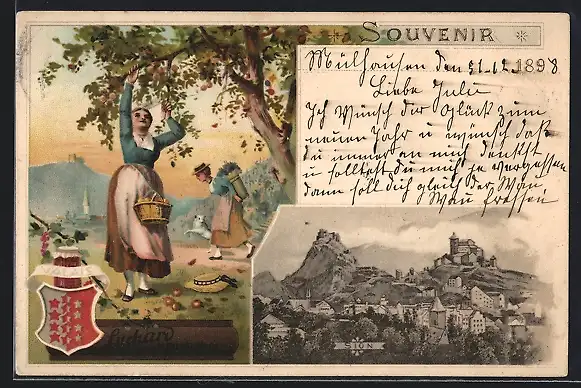 SOUVENIR
Mülhausen den 31.12.1898
Liebe Julu
Ich Wunsch dir Glück zum
neuen Jahr u wünsch daß
du immer an mich denkst
u solltest du mich je vergessen
dann soll dich gleich der Wau
Wau fressen
Suchard
SION